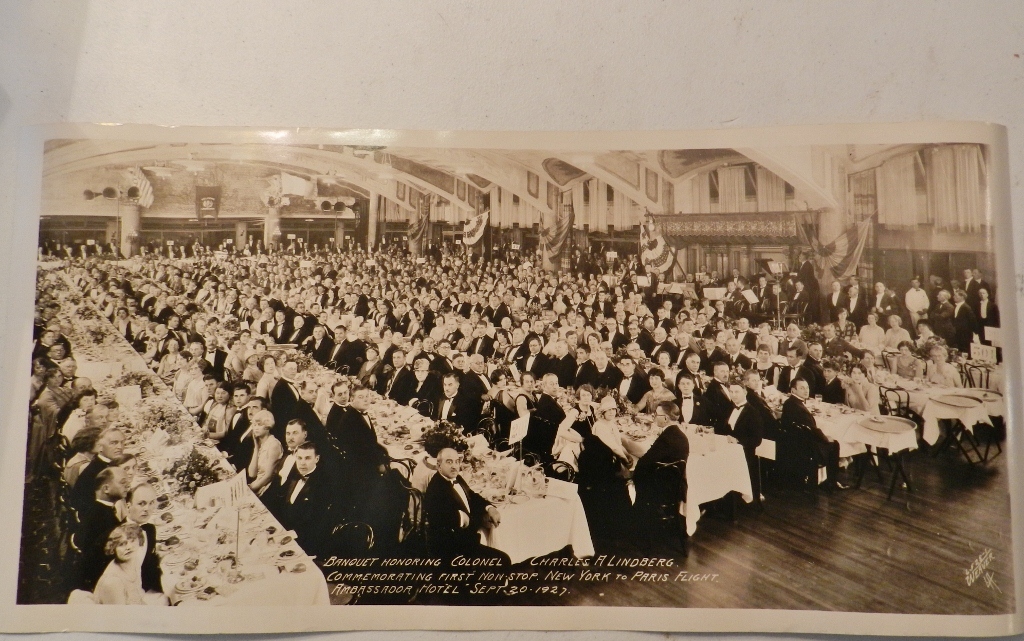 BANQUET HONORING COLONEL CHARLES A LINDBERG.
COMMEMORATING FIRST NON-STOP. NEW YORK TO PARIS FLIGHT.
AMBASSADOR HOTEL SEPT. 20-1927.